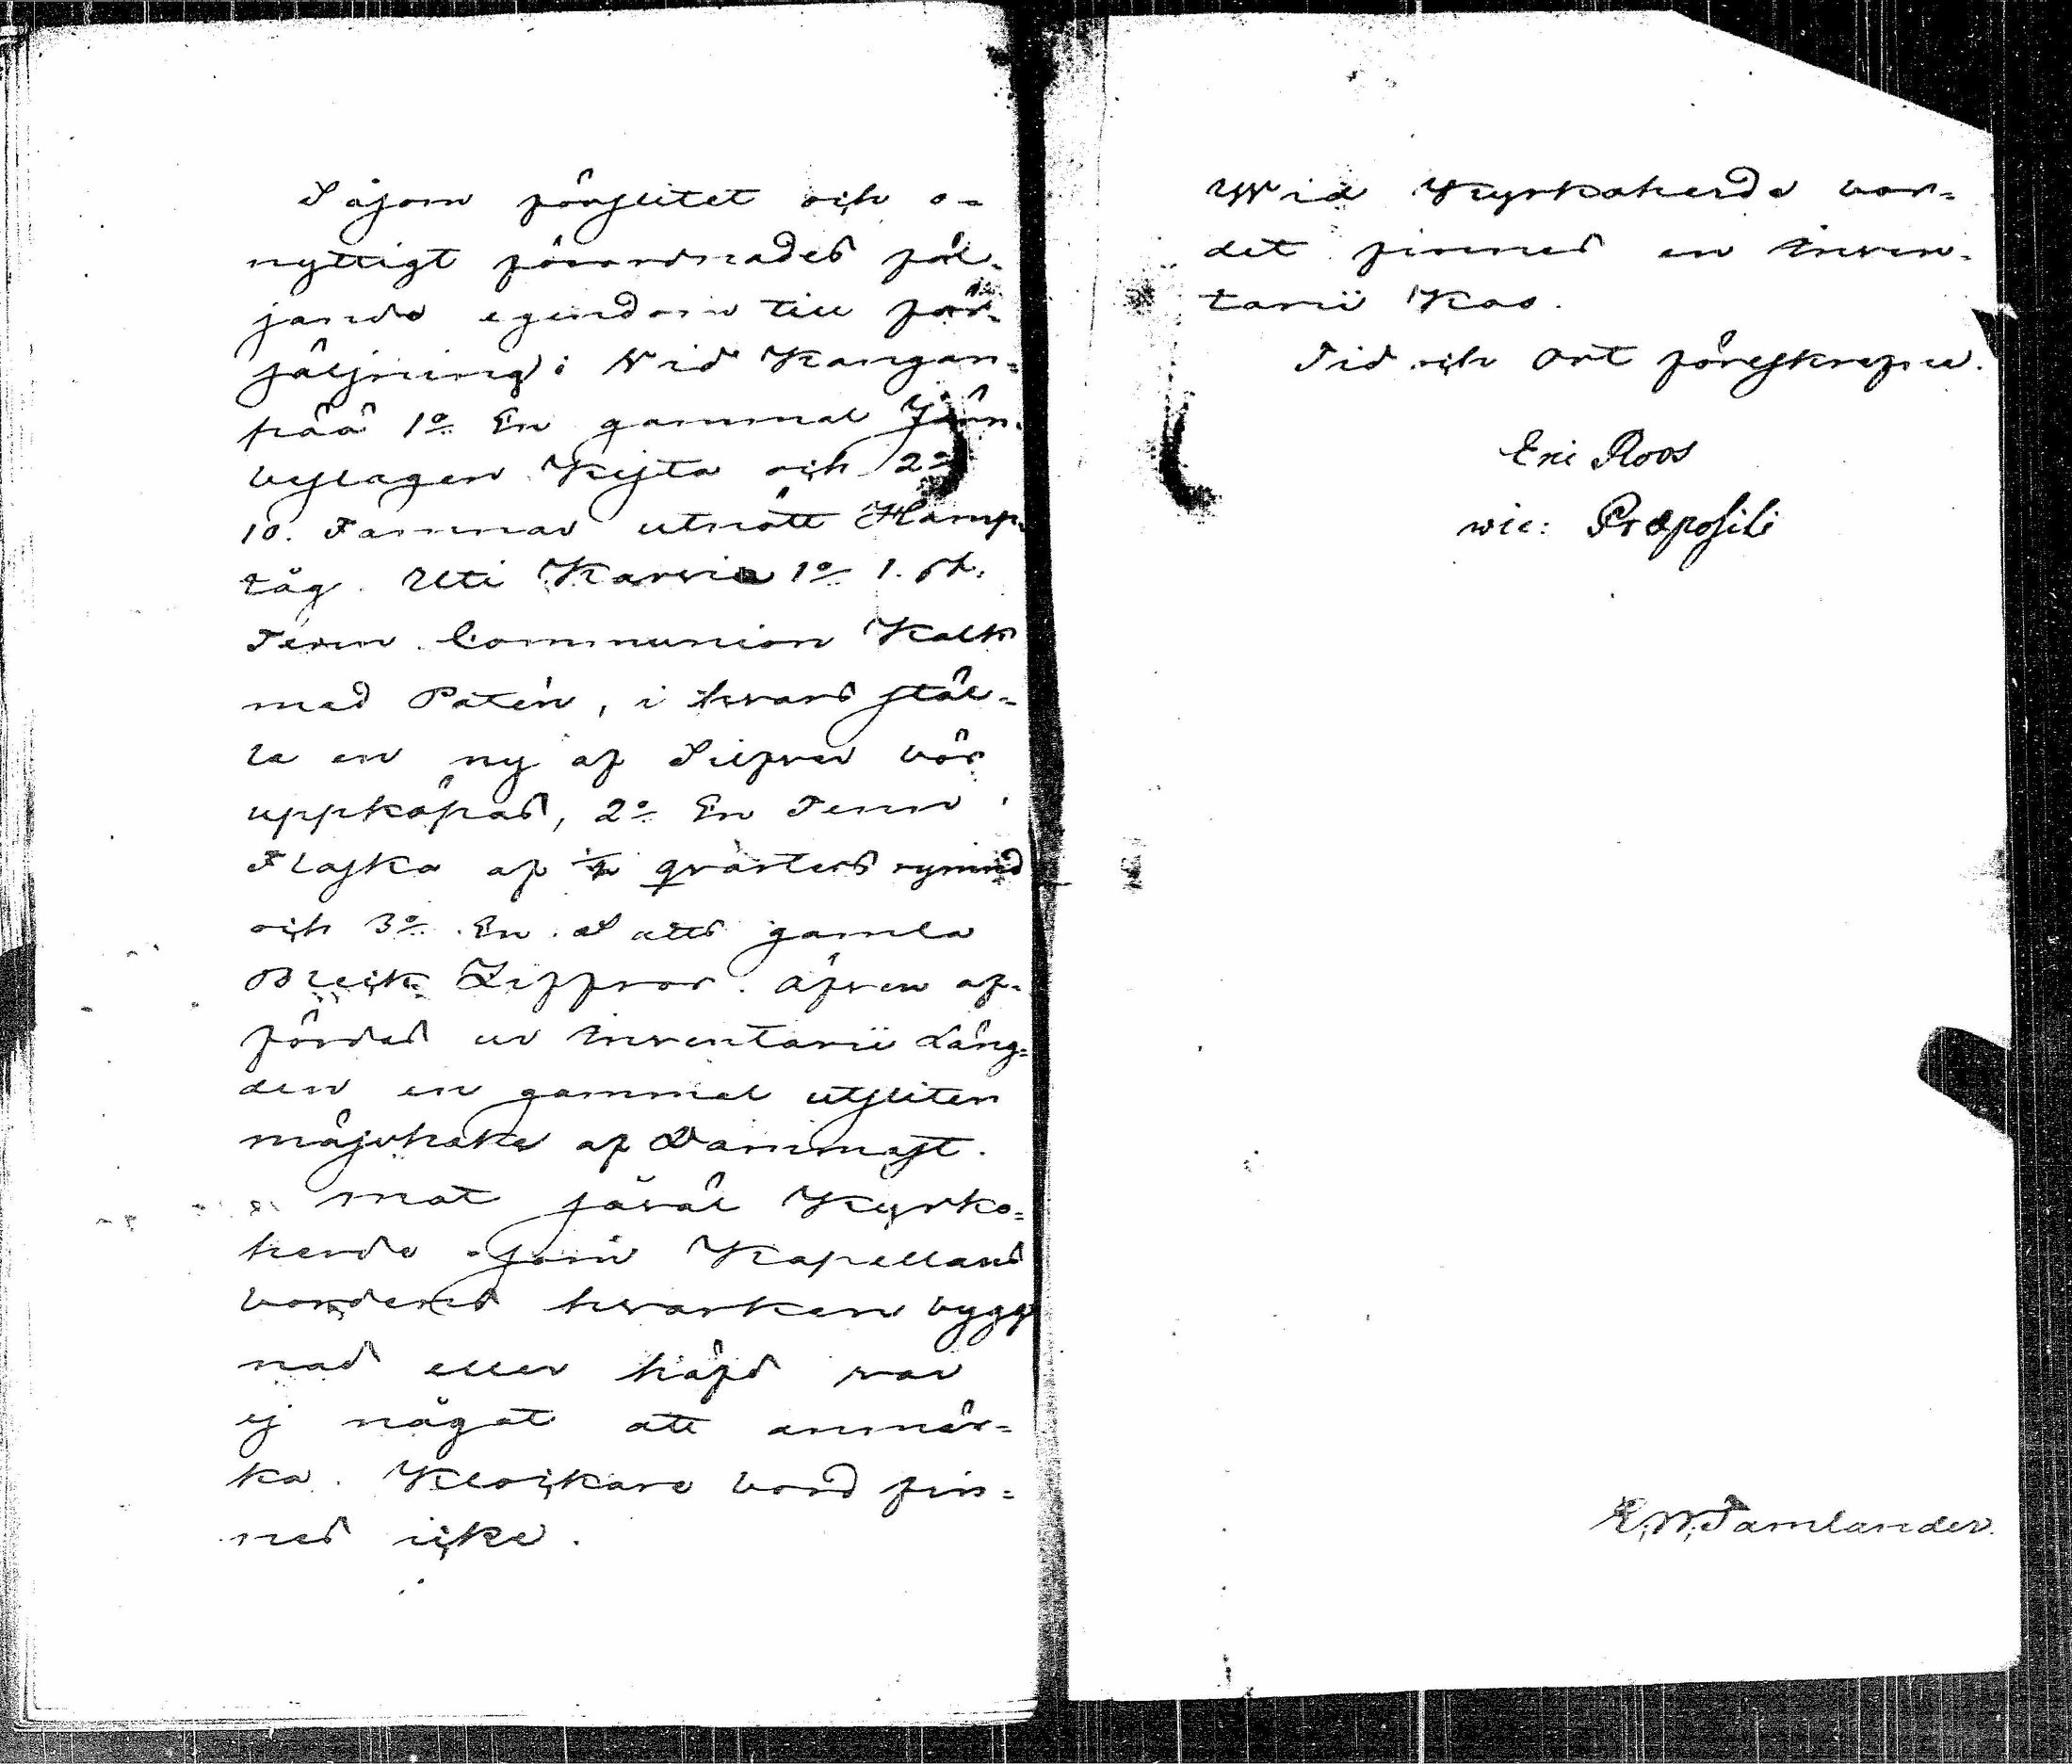 Såsom förslitet och o-
nyttigt förordnades föl-
jande egendom till för-
säljning: Vid Kangan-
pää 1:o En gammal Järn-
beslagen Kista och 2:o
10. Famnar utnött Hamp-
tåg. Uti Karvia 1:o 1. st.
Tenn Communion Kalk
med Patén, i hvars stäl-
le en ny af Silfver bör
uppköpas, 2:o En Tenn
Flaska af qvarters rymd
och 3:o En Sats gamla
Bleck Ziffror. Äfven af-
fördes ur Inventarii Läng-
den en gammal utsliten
mässhake af Dammast.
Mot såväl Kyrko-
herde som Kapellans
bordens hvarken bygg
nad eller häfd var
ej något att anmär-
ka. Klockare bord fin-
nes icke.
Wid Kyrkoherde bor-
det finnes en Inven-
tarii Kao.
Tid och Ort föreskrefne.
Eric Roos
vic: Præpositi
E. W. Tamlander.